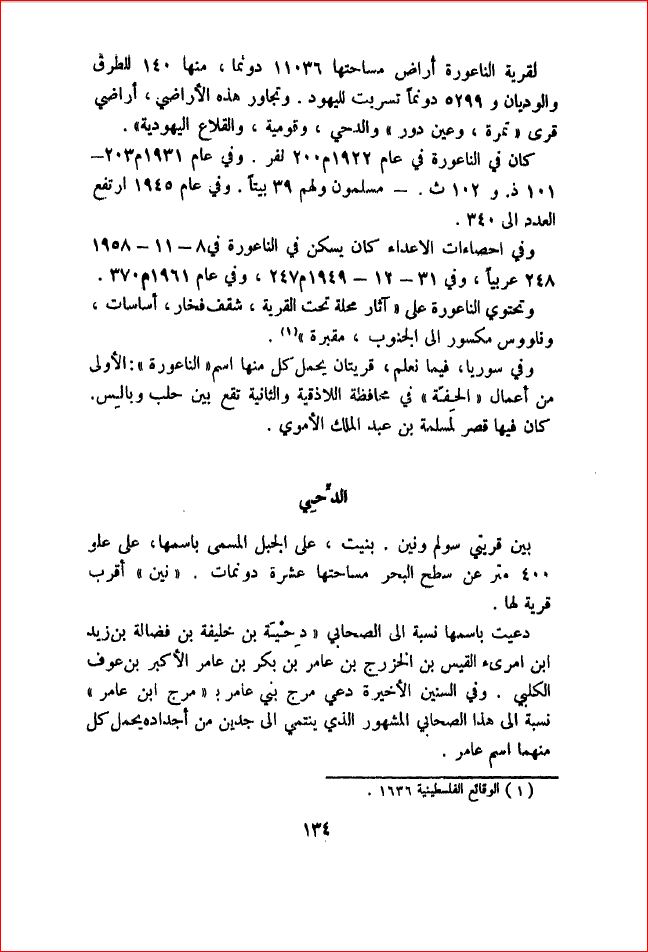 لقرية الناعورة أراض مساحتها ١١٠٣٦ دونما ، منها ١٤٠ للطرق
والوديان و ٥٢٩٩ دونماً تسربت لليهود . وتجاور هذه الأراضي ، أراضي
قرى « تمرة ، وعين دور » والدحي ، وقومية ، والقلاع اليهودية» .
كان في الناعورة في عام ١٩٢٢م٢٠٠ نفر . وفي عام ١٩٣١م٢٠٣—
١٠١ ذ. و ١٠٢ ث . — مسلمون ولهم ٣٩ بيتاً . وفي عام ١٩٤٥ ارتفع
العدد الى ٣٤٠ .
وفي احصاءات الاعداء كان يسكن في الناعورة في٨ — ١١ — ١٩٥٨
٢٤٨ عربياً ، وفي ٣١ — ١٢ — ١٩٤٩م٢٤٧ ، وفي عام ١٩٦١م٣٧٠ .
وتحتوي الناعورة على « آثار محلة تحت القرية ، شقف فخار، أساسات ،
وناووس مكسور الى الجنوب ، مقبرة »(١) .
وفي سوريا، فيما نعلم ، قريتان يحمل كل منها اسم« الناعورة »: الأولى
من أعمال « الحِفّة » في محافظة اللاذقية والثانية تقع بين حلب وبالِس.
كان فيها قصر لمسلمة بن عبد الملك الأموي .
الدُّحِي
بين قريتي سولم ونين . بنيت ، على الجبل المسمى باسمها، على علو
٤٠٠ متر عن سطح البحر مساحتها عشرة دونمات . « نين » أقرب
قرية لها .
دعيت باسمها نسبة الى الصحابي « دِحْيَة بن خليفة بن فضالة بن زيد
ابن امرىء القيس بن الخزرج بن عامر بن بكر بن عامر الأكبر بن عوف
الكلبي . وفي السنين الأخيرة دعي مرج بني عامر بـ « مرج ابن عامر »
نسبة الى هذا الصحابي المشهور الذي ينتمي الى جدين من أجداده يحمل كل
منهما اسم عامر .
( ١ ) الوقائع الفلسطينية ١٦٣٦ .
١٣٤